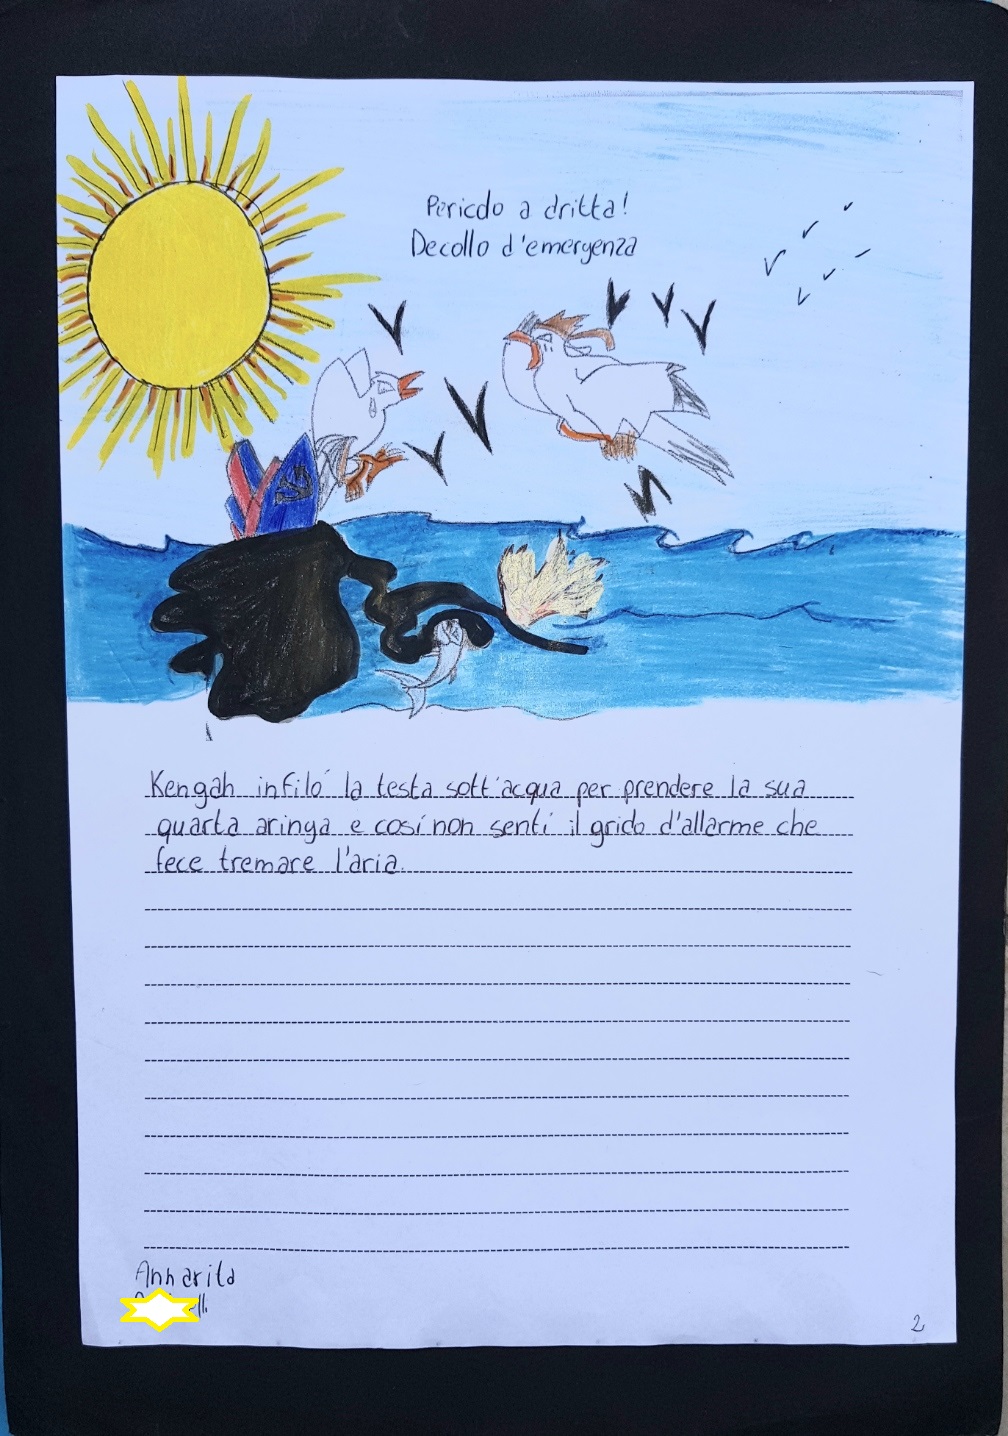 Pericolo a dritta!
Decollo d'emergenza
Kengah infiló la testa sott'acqua per prendere la sua
quarta aringa e cosí non sentí il grido d'allarme che
fece tremare l'aria.
Annarita
2